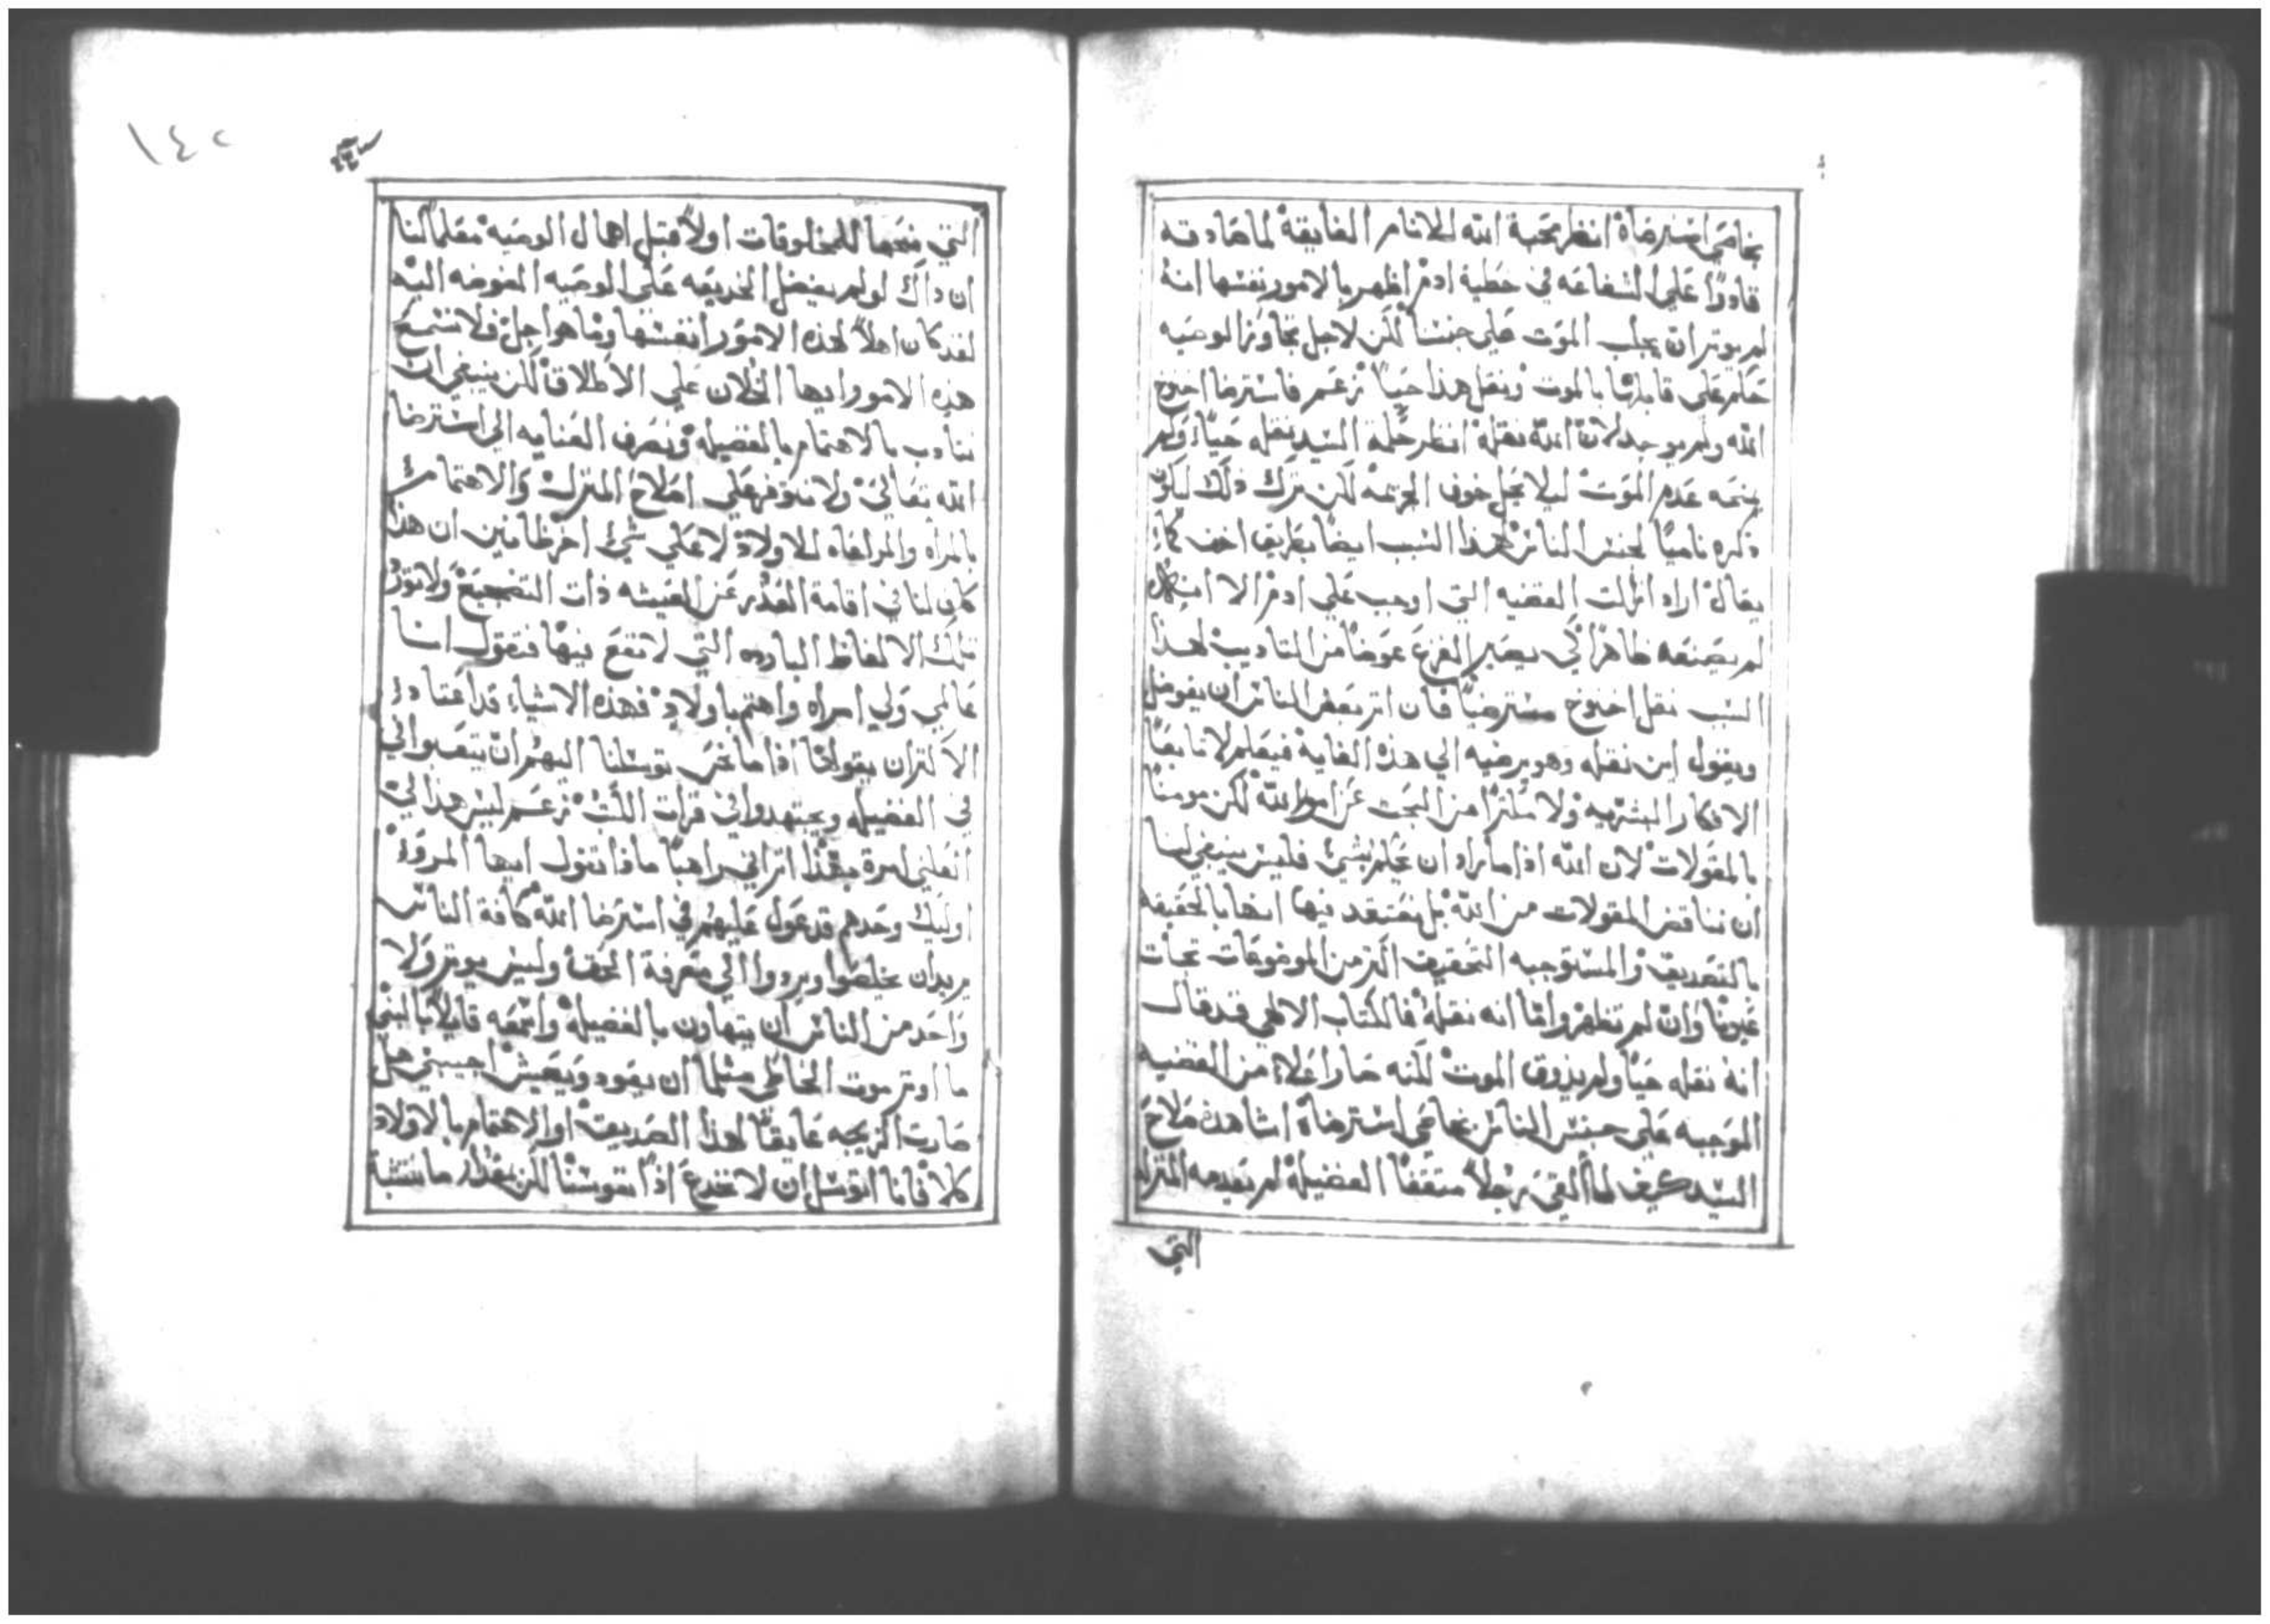 بخامي استرضاه انظر محبة الله للانام الفايقة لما صادفه
قادرًا علي الشفاعه في خطية ادم اظهر بالامور نفسها انه
لم يوتر ان يجلب الموت علي جنسنا لكن لاجل تجاوز الوصيه
حكم علي قابلها بالموت ونقل هذا حيًا نزعم فاسترضا اخنوخ
الله ولم يوجد لان الله نقله انظر حكمة السيد نقله حيًا ولم
يمنحه عدم الموت ليلا يحل خوف الجزعه لكن ترك ذلك ليكون
ذكره ناميًا لجنس الناس لهذا السبب ايضا بطريق اخف كما
يقال اراد ازالت القضيه التي اوجب علي ادم الا انه
لم يصنعه ظاهرًا لكي يصير الفزع عوضًا من التاديب لهذا
السبب نقل اخنوخ مسترضيًا فان اتر بعض الناس ان يفوضل
ويقول اين نقله وهو يرضيه الي هذه الغاية فيعلم لا تابعًا
الافكار البشريه ولا مكترًا من البحت عن امور الله لكن مومنًا
بالمقولات لان الله اذا ما اراد ان يعلم بشيء فليس ينبغي لنا
ان نناقض المقولات من الله بل نعتقد فيها انها بالحقيقه
بالتصديق والمستوجبه التحقيق اكتر من الموضوعات تجات
عيوننا وان لم تظهر واما انه نقله فالكتاب الالهي قد قال
انه نقله حيًا ولم يذوق الموت لكنه صار اعلاه من القضيه
الموجبه علي جنس الناس بخامي استرضاه اشاهدت صلاح
السيد كيف لما القي رجلاً متقفًا الفضيلة لم يعدمه المنزله
التي
١٤٥
التي منحها للمخلوقات اولاً قبل اهمال الوصيه معلمًا لنا
ان داك لو لم يفضل الخديعه علي الوصيه المفوضه اليه
لقد كان اهلاً لهذه الامور انفسها وما هو اجل فلا نستمع
هذه الامور ايها الخلان علي الاطلاق لكن ينبغي ان
نتادب بالاهتمام بالفضيله ونصرف العنايه الي استرضا
الله تعالي ولا نتوفر علي اصلاح المنزل والاهتمام
بالمراه والمراعاه للاولاد لا علي شيء اخر ظانين ان هذا
كاف لنا في اقامة العذر عن العيشه ذات التضجيع ولا نورد
تلك الالفاظ البارده التي لا تنفع فيها فنقول انا
عالمي ولي امراه واهتم باولاد فهذه الاشياء قد اعتاد
الاكتران يقولها اذا ما نحن توسلنا اليهم ان يتعبوا في
في الفضيله ويجتهدوا في قرات الكتب نزعم ليس هذا لي
افعلي لمرة بهذا اتراني راهبًا ماذا تقول ايها المرو
اوليك وحدهم قد عول عليهم في استرضا الله كافة الناس
يريد ان يخلصوا ويردوا الي معرفة الحق وليس يوتر ولا
واحد من الناس ان يتهاون بالفضيلة واسمعه قايلاً بالنبي
ما اوتر موت الخاطي مثلما ان يعود ويعيش اجيبني هل
صارت الزيجه عايقًا لهذا الصديق او الاهتمام بالاولاد
كلا فانا اتوسل ان لا نخدع اذًا نفوسنا لكن بمقدار ما نتشبه